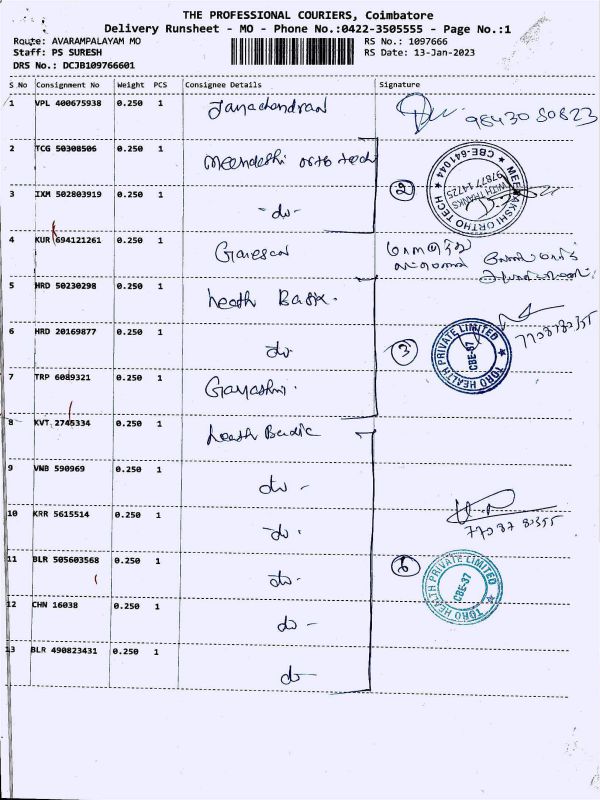 THE PROFESSIONAL COURIERS, Coimbatore
Delivery Runsheet - MO - Phone No.:0422-3505555 - Page No.:1
Route: AVARAMPALAYAM MO RS No.: 1097666
Staff: PS SURESH RS Date: 13-Jan-2023
DRS No.: DCJB109766601
S No Consignment No Weight PCS Consignee Details Signature
1 VPL 400675938 0.250 1 9843080823
2 TCG 50308506 0.250 1 Meenakshi ortho tech
CBE-641044 ★ MEENAKSHI ORTHO TECH ★ WITH THANKS 97877 14725
3 IXM 502803919 0.250 1 -do- 2
4 KUR 694121261 0.250 1 Ganesan
5 HRD 50230298 0.250 1 heath Basix.
7708780355
6 HRD 20169877 0.250 1 do. 3
TORO HEALTH PRIVATE LIMITED ★ CBE-37
7 TRP 6089321 0.250 1
8 KVT 2745334 0.250 1
9 VNB 590969 0.250 1 do -
10 KRR 5615514 0.250 1 do. 77087 80355
11 BLR 505603568 0.250 1 do- 6
TORO HEALTH PRIVATE LIMITED ★ CBE-37
12 CHN 16038 0.250 1 do -
13 BLR 490823431 0.250 1 do -